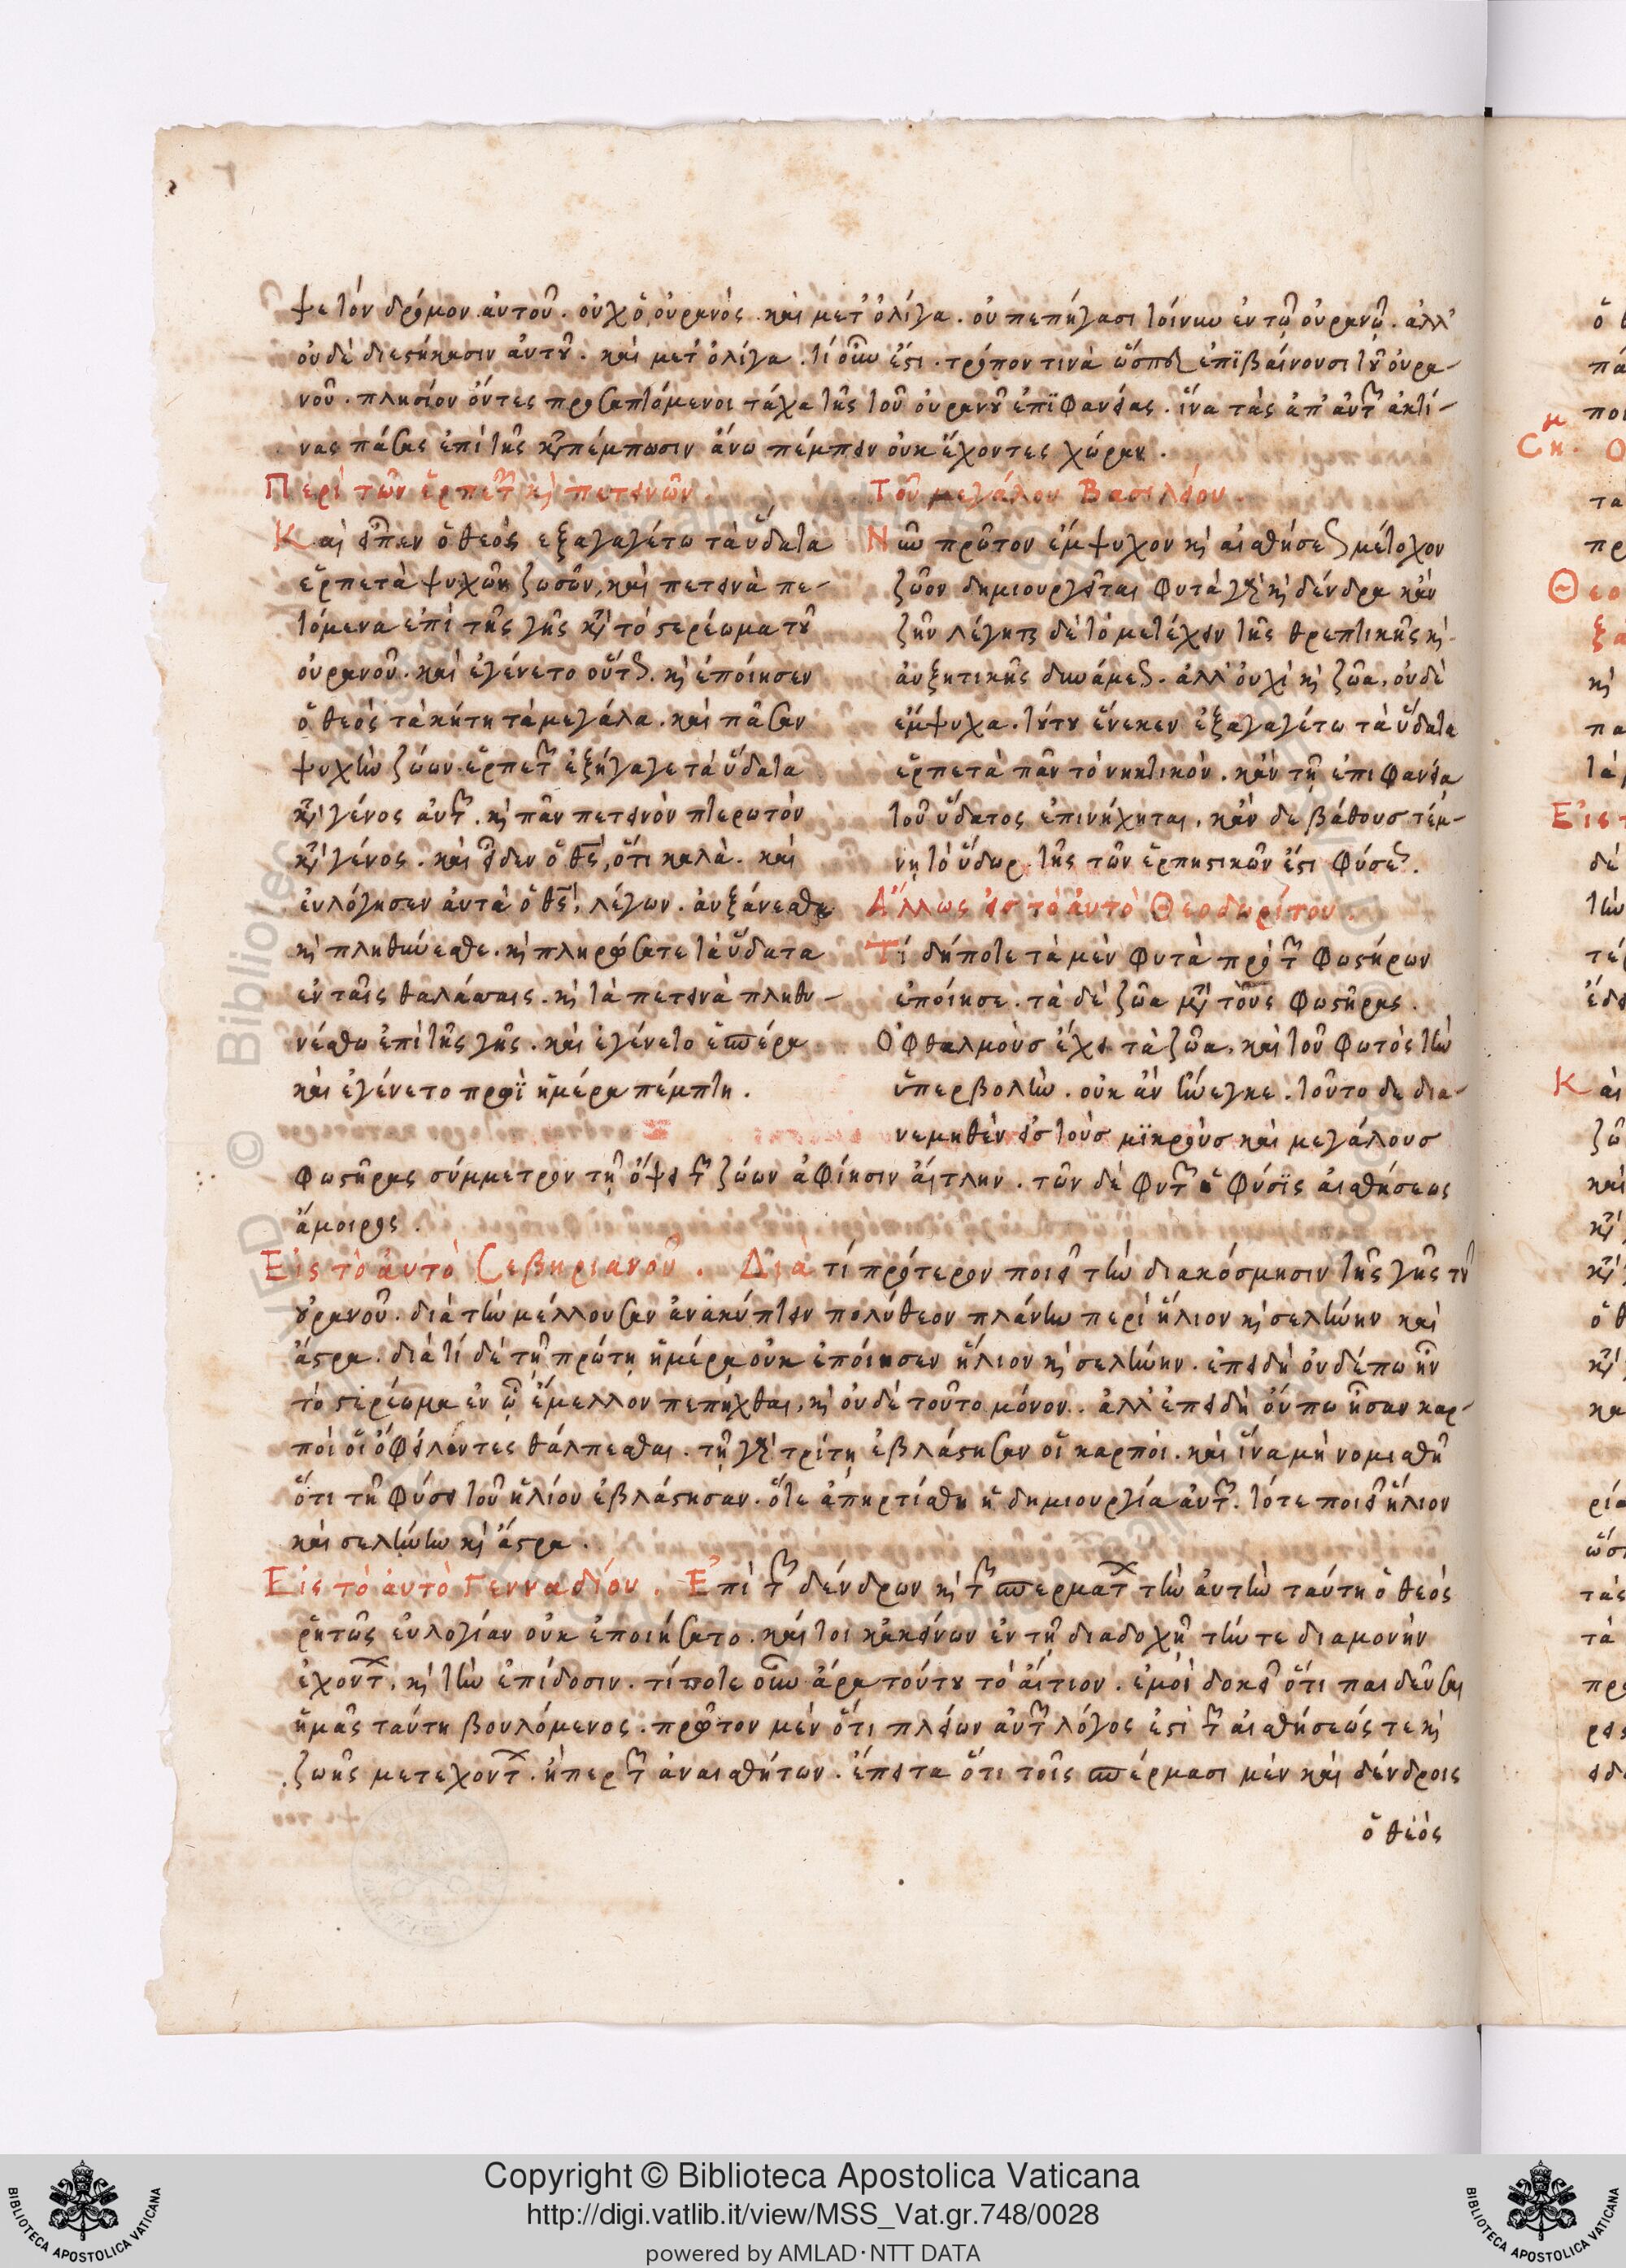 ψε τὸν δρόμον αὐτοῦ. οὐχ ὁ οὐρανός. καὶ μετ' ὀλίγα. οὐ πεπήγασι τοίνυν ἐν τῷ οὐρανῷ. ἀλλ'
οὐδὲ διεστήκασιν αὐτοῦ. καὶ μετ' ὀλίγα. τί οὖν ἐστι. τρόπον τινὰ ὥσπερ ἐπϊβαίνουσι τοῦ οὐρα-
νοῦ. πλησίον ὄντες προσαπτόμενοι τάχα τῆς τοῦ οὐρανοῦ ἐπϊφανείας. ἵνα τὰς ἀπ' αὐτῶν ἀκτί-
νας πάσας ἐπὶ γῆς καταπέμπωσιν ἄνω πέμπειν οὐκ ἔχοντες χώραν.
Περὶ τῶν ἑρπετῶν καὶ πετεινῶν.
Καὶ εἶπεν ὁ θεὸς ἐξαγαγέτω τὰ ὕδατα
ἑρπετὰ ψυχῶν ζωσῶν, καὶ πετεινὰ πε-
τόμενα ἐπὶ τῆς γῆς κατὰ τὸ στερέωμα τοῦ
οὐρανοῦ. καὶ ἐγένετο οὕτως. καὶ ἐποίησεν
ὁ θεὸς τὰ κήτη τὰ μεγάλα. καὶ πᾶσαν
ψυχὴν ζώων ἑρπετῶν ἐξήγαγε τὰ ὕδατα
κατὰ γένος αὐτῶν. καὶ πᾶν πετεινὸν πτερωτὸν
κατὰ γένος. καὶ εἶδεν ὁ θς, ὅτι καλά. καὶ
εὐλόγησεν αὐτὰ ὁ θς, λέγων. αὐξάνεσθε
καὶ πληθύνεσθε. καὶ πληρώσατε τὰ ὕδατα
ἐν ταῖς θαλάσσαις. καὶ τὰ πετεινὰ πληθυ-
νέσθω ἐπὶ τῆς γῆς. καὶ ἐγένετο ἑσπέρα
καὶ ἐγένετο πρωῒ ἡμέρα πέμπτη.
Τοῦ μεγάλου Βασιλείου.
Νῦν πρῶτον ἔμψυχον καὶ αἰσθήσεως μέτοχον
ζῶον δημιουργεῖται φυτὰ γὰρ καὶ δένδρα κἂν
ζῆν λέγηται δὲ τὸ μετέχειν τῆς θρεπτικῆς καὶ
αὐξητικῆς δυνάμεως. ἀλλ' οὐχὶ καὶ ζῶα, οὐδὲ
ἔμψυχα. τούτου ἕνεκεν ἐξαγαγέτω τὰ ὕδατα
ἑρπετὰ πᾶν τὸ νηκτικὸν. κἂν τῇ ἐπιφανεία
τοῦ ὕδατος ἐπινήχηται, κἂν δε βάθους τέμ-
νῃ τὸ ὕδωρ. τῆς τῶν ἑρπηστικῶν ἐστι φύσεως.
Ἄλλως εἰς τὸ αὐτὸ Θεοδωρίτου.
Τί δήποτε τὰ μὲν φυτὰ πρὸ τῶν φωστήρων
ἐποίησε. τὰ δὲ ζῶα μετὰ τοὺς φωστῆρας.
Ὀφθαλμοὺσ ἔχει τὰ ζῶα, καὶ τοῦ φωτὸς τὴν
ὑπερβολὴν. οὐκ ἂν ἤνεγκε. τοῦτο δε δια-
νεμηθὲν εἰσ τοὺσ μϊκροὺσ καὶ μεγάλουσ
φωστῆρας σύμμετρον τῇ ὄψει τῶν ζώων ἀφίησιν αἴγλην. τῶν δὲ φυτῶν ἡ φύσϊς αἰσθήσεως
ἄμοιρος.
Εἰς τὸ αὐτὸ Σεβηριανοῦ. Διὰ τί πρότερον ποιεῖ τὴν διακόσμησιν τῆς γῆς τοῦ
οὐρανοῦ. διὰ τὴν μέλλουσαν ἀνακύπτειν πολύθεον πλάνην περὶ ἥλιον καὶ σελήνην καὶ
ἄστρα. διὰ τί δὲ τῇ πρώτῃ ἡμέρα οὐκ ἐποίησεν ἥλιον καὶ σελήνην. ἐπειδὴ οὐδέπω ἦν
τὸ στερέωμα ἐν ᾧ ἔμελλον πεπῆχθαι, καὶ οὐδὲ τοῦτο μόνον. ἀλλ' ἐπειδὴ οὔπω ἦσαν καρ-
ποὶ οἱ ὀφείλοντες θάλπεσθαι. τῇ γὰρ τρίτῃ ἐβλάστησαν οἱ καρποὶ. καὶ ἵνα μὴ νομισθῆ
ὅτι τῇ φύσει τοῦ ἡλίου ἐβλάστησαν. ὅτε ἀπηρτίσθη ἡ δημιουργία αὐτῶν. τότε ποιεῖ ἥλιον
καὶ σελήνην καὶ ἄστρα.
Εἰς τὸ αὐτὸ Γενναδίου. Ἐπὶ τῶν δένδρων καὶ τῶν σπερμάτων τὴν αὐτὴν ταύτη ὁ θεὸς
ῥητῶς εὐλογίαν οὐκ ἐποιήσατο. καί τοι κἀκείνων ἐν τῇ διαδοχῇ τήν τε διαμονὴν
ἐχόντων, καὶ τὴν ἐπίδοσιν. τί ποτε οὖν ἄρα τούτου τὸ αἴτιον. ἐμοὶ δοκεῖ ὅτι παιδεῦσαι
ἡμᾶς ταύτη βουλόμενος. πρῶτον μὲν ὅτι πλείων αὐτῶ λόγος ἐστὶ τῶν αἰσθήσεώς τε καὶ
ζωῆς μετεχόντων. ἤπερ τῶν ἀναισθήτων. ἔπειτα ὅτι τοῖς σπέρμασι μὲν καὶ δένδροις
ὁ θεὸς
Copyright © Biblioteca Apostolica Vaticana
http://digi.vatlib.it/view/MSS_Vat.gr.748/0028
powered by AMLAD·NTT DATA
BIBLIOTECA APOSTOLICA VATICANA
BIBLIOTECA APOSTOLICA VATICANA